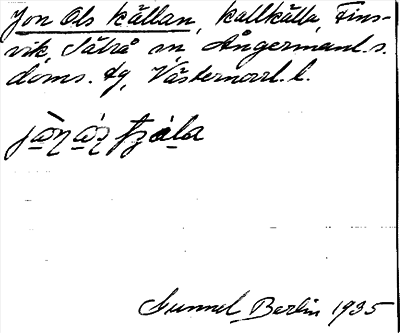 Jon Ols källan, kallkälla, Fins-
vik, Sätrå sn Ångermanl. s.
doms. tg, Västernorrl. l.
Gunnel Berlin 1935